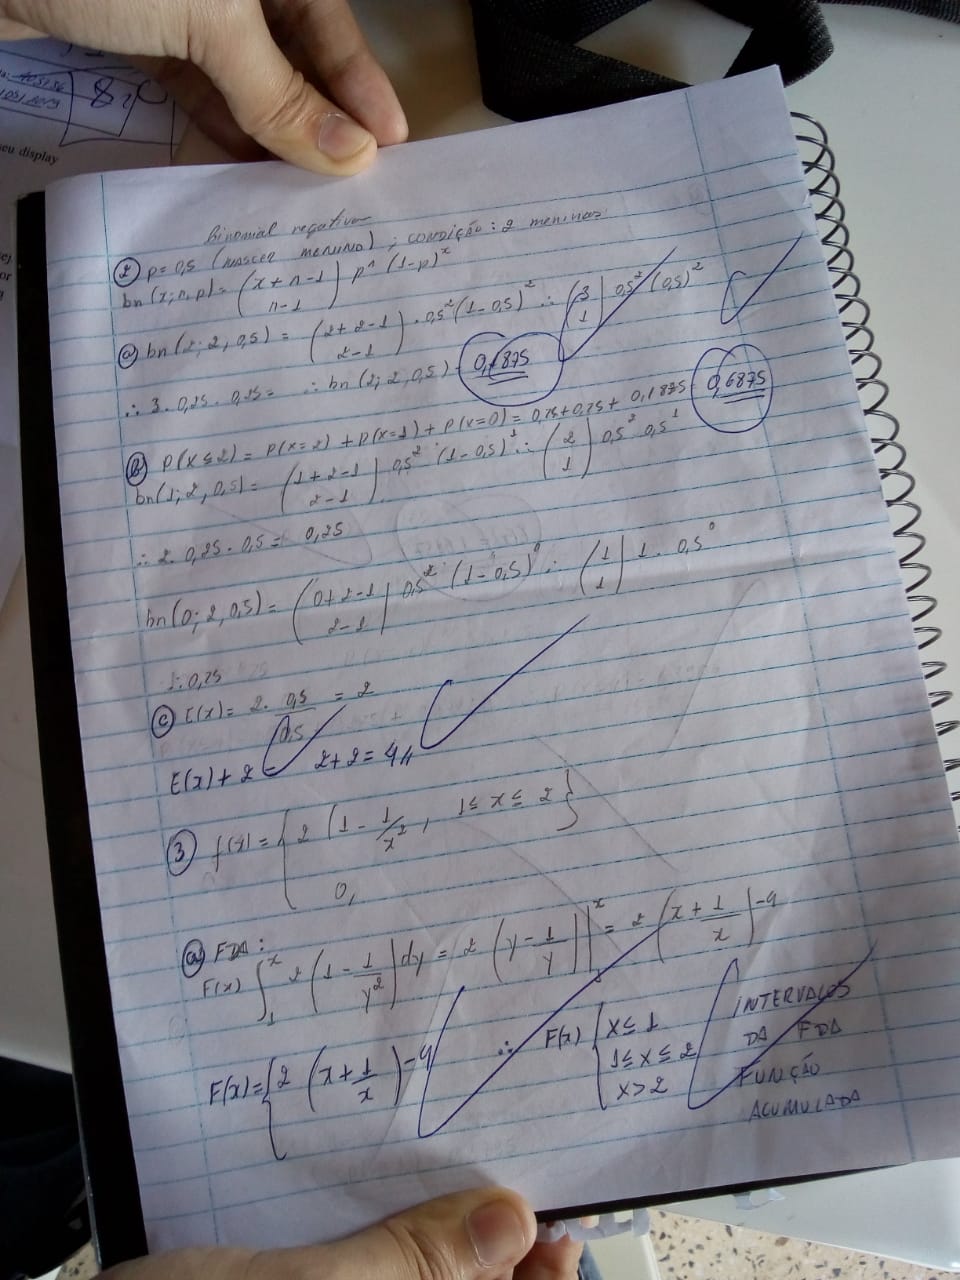 8,
seu display
Binomial negativa
② p = 0,5 (nascer menino); condição: 2 meninas
bn (x; n, p) = (x + n - 1 / n - 1) pⁿ (1-p)ˣ
ⓐ bn (2; 2, 0,5) = (2 + 2 - 1 / 2 - 1) . 0,5² (1 - 0,5)² ∴ (3 / 1) 0,5² (0,5)²
∴ 3 . 0,25 . 0,25 = ∴ bn (2; 2, 0,5) = 0,1875
ⓑ P(x ≤ 2) = P(x=2) + P(x=1) + P(x=0) = 0,25 + 0,25 + 0,1875 = 0,6875
bn (1; 2, 0,5) = (1 + 2 - 1 / 2 - 1) 0,5² . (1 - 0,5)¹ ∴ (2 / 1) 0,5² 0,5¹
∴ 2 . 0,25 . 0,5 = 0,25
bn (0; 2, 0,5) = (0 + 2 - 1 / 2 - 1) 0,5² . (1 - 0,5)⁰ ∴ (1 / 1) 1 . 0,5⁰
∴ 0,25
ⓒ E(x) = 2 . 0,5 / 0,5 = 2
E(x) + 2 = 2 + 2 = 4 //
③ f(x) = { 2 (1 - 1/x², 1 ≤ x ≤ 2 }
0,
ⓐ FDA :
F(x) ∫₁ˣ 2 (1 - 1/y²) dy = 2 (y - 1/y) |₁ˣ = 2 (x + 1/x) - 4
F(x) = { 2 (x + 1/x) - 4 ∴ F(x) { x ≤ 1
1 ≤ x ≤ 2
x > 2
INTERVALOS
DA FDA
FUNÇÃO
ACUMULADA